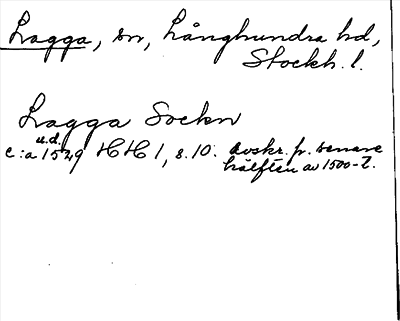 Lagga, sn, Långhundra hd,
Stockh. l.
Lagga Sockn
u.d.
c:a 1529 HH 1, s. 10. Avskr. fr. senare
hälften av 1500-t.